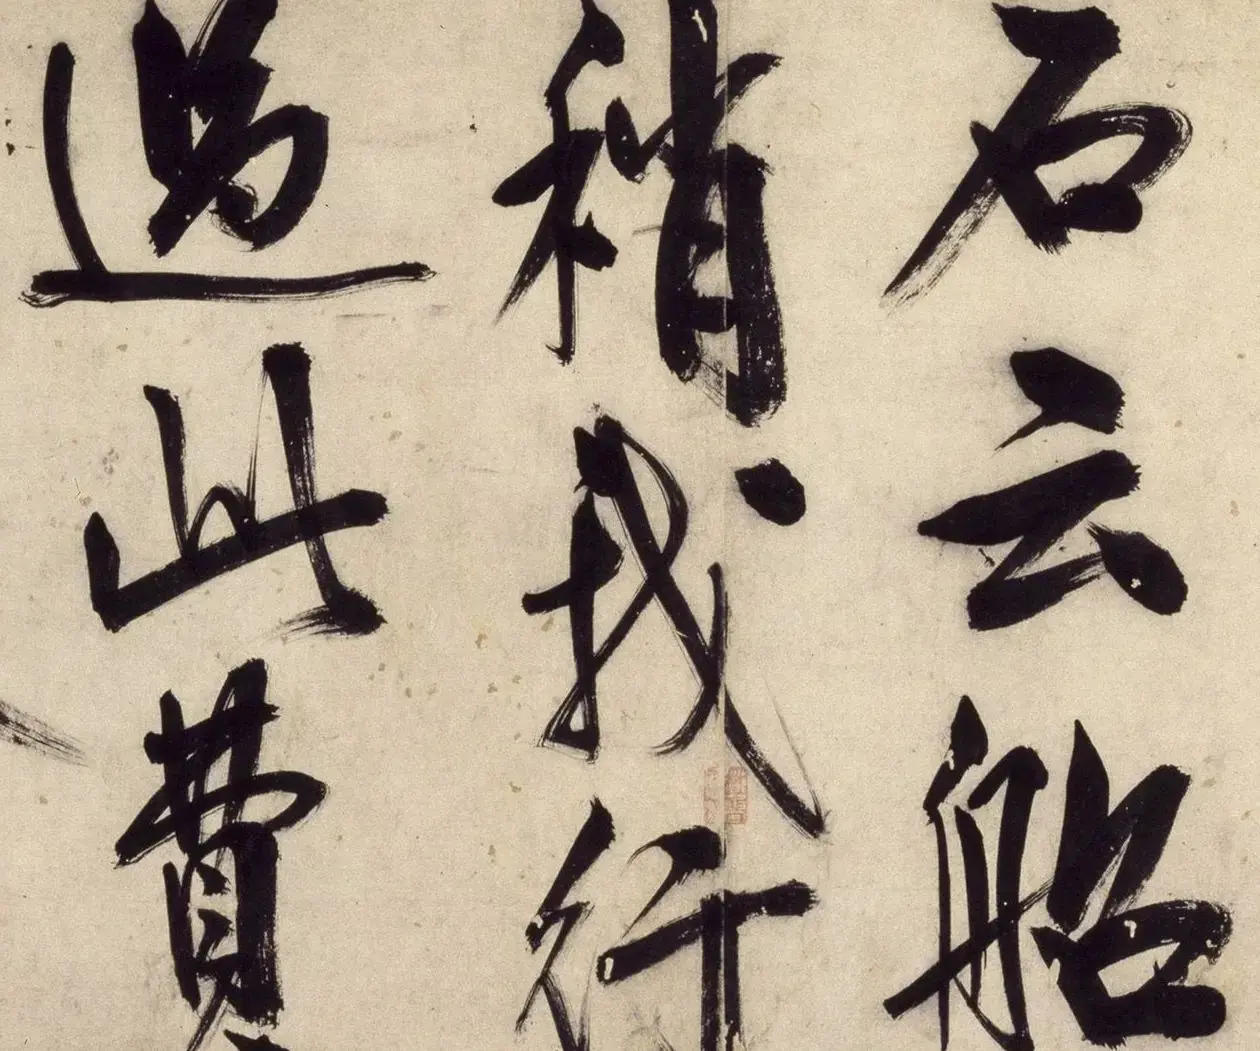 石云船
稍我行
過此費